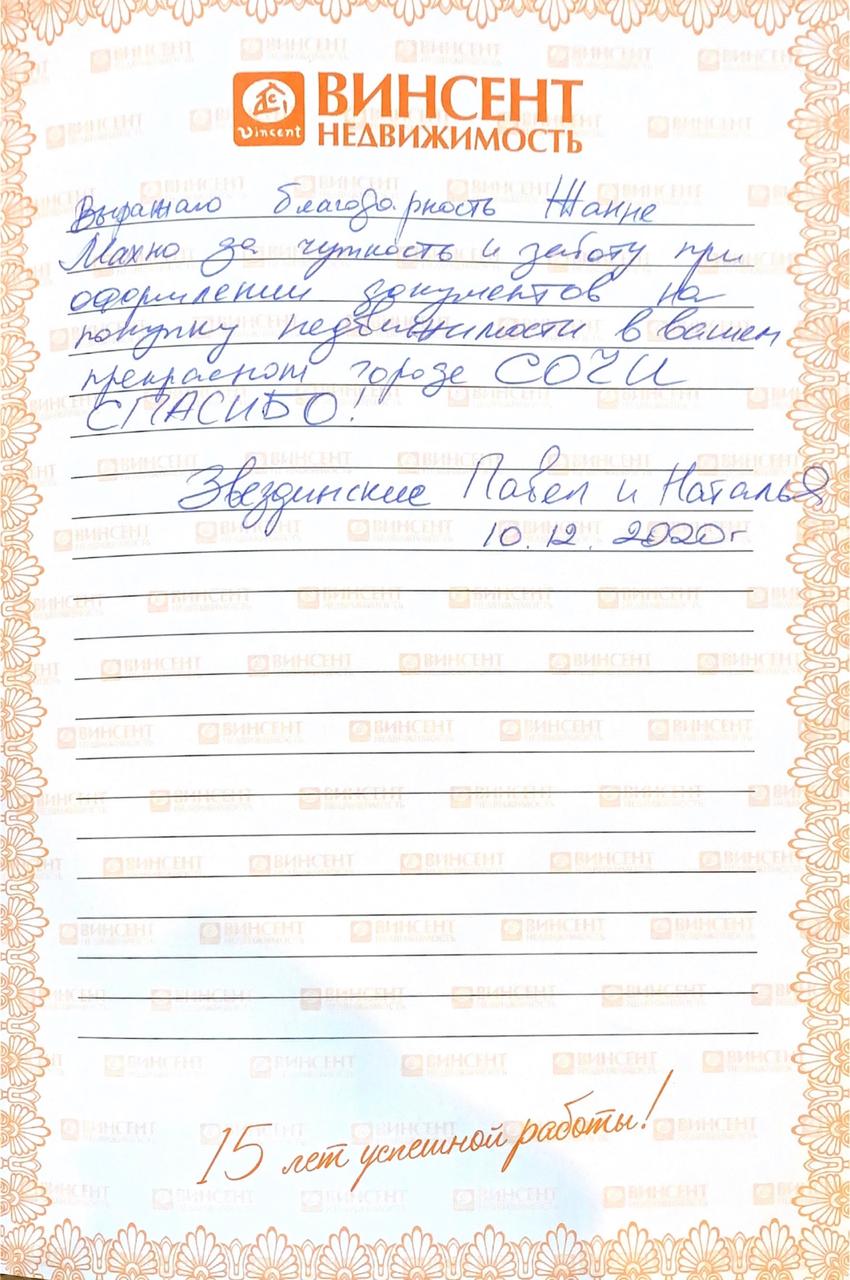 Vincent
ВИНСЕНТ
НЕДВИЖИМОСТЬ
Выражаю благодарность Жанне
Махно за чуткость и заботу при
оформлении документов на
покупку недвижимости в вашем
прекрасном городе СОЧИ
СПАСИБО!
Звездинские Павел и Наталья
10.12.2020г
15 лет успешной работы!